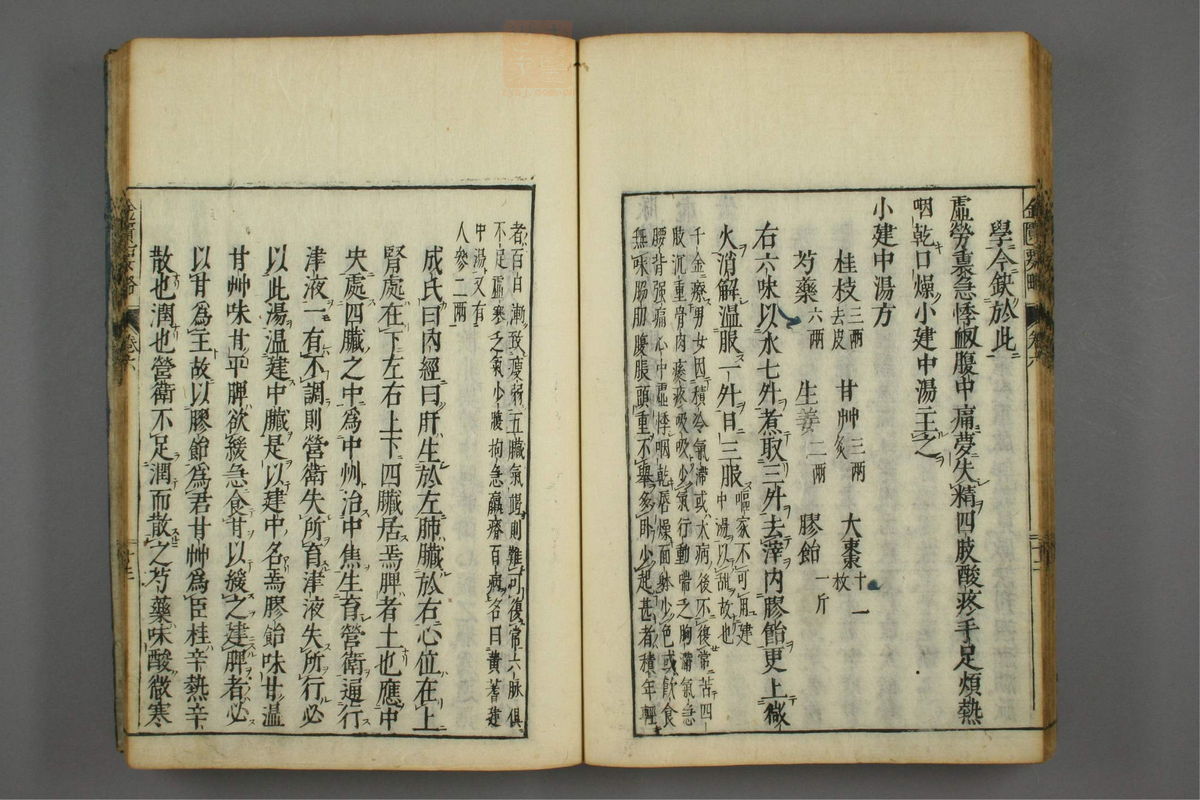 金匱要略 卷六
學今缺於此
虛勞裏急悸衂腹中痛夢失精四肢酸疼手足煩熱
咽乾口燥小建中湯主之
小建中湯方
桂枝三兩去皮 甘艸三兩炙 大棗十一枚
芍藥六兩 生姜二兩 膠飴一斤
右六味以水七升煮取三升去滓內膠飴更上微
火消解温服一升日三服嘔家不可用建中湯以甜故也
千金療男女因積冷氣滯或大病後不復常苦四
肢沉重骨肉痠疼吸吸少氣行動喘乏胸滿氣急
腰背强痛心中虛悸咽乾唇燥面躰少色或飲食
無味脇肋腹脹頭重不舉多卧少起甚者積年輕
者百日漸致瘦弱五臟氣竭則難可復常六脉俱
不足虛寒乏氣少腹拘急羸瘠百病名曰黄蓍建
中湯又有
人參二兩
成氏曰內經曰肝生於左肺臟於右心位在上
腎處在下左右上下四臟居焉脾者土也應中
央處四臟之中爲中州治中焦生育營衛逼行
津液一有不調則營衛失所育津液失所行必
以此湯温建中臟是以建中名焉膠飴味甘温
甘艸味甘平脾欲緩急食甘以緩之建脾者必
以甘爲主故以膠飴爲君甘艸爲臣桂辛熱辛
散也潤也營衛不足潤而散之芍藥味酸微寒
卷六